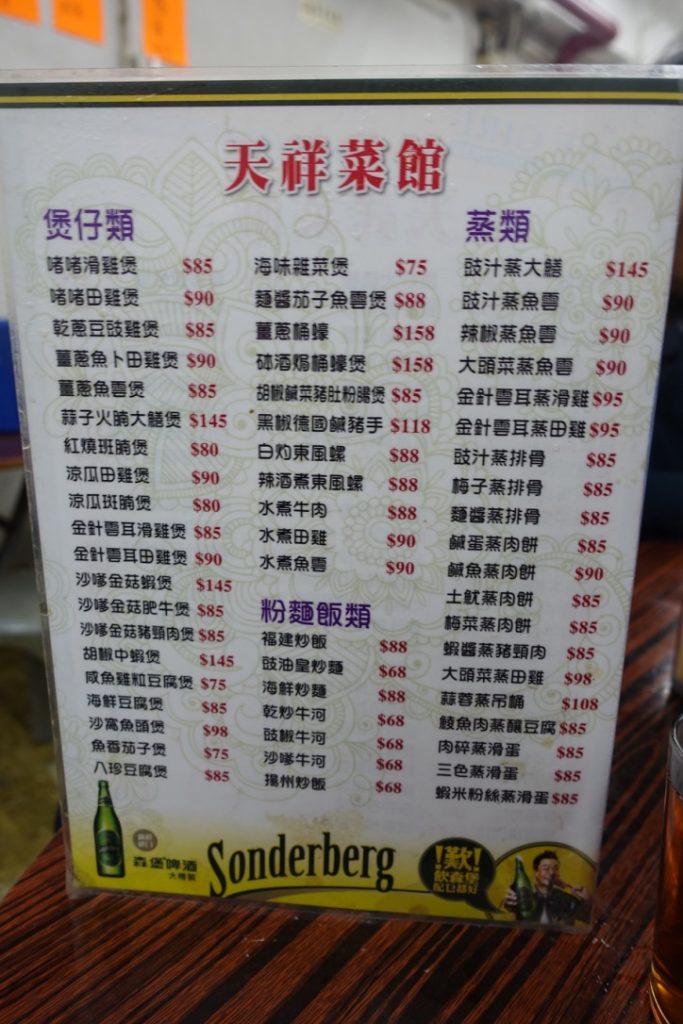 天祥菜館
煲仔類
啫啫滑雞煲 $85
啫啫田雞煲 $90
乾蔥豆豉雞煲 $85
薑蔥魚卜田雞煲 $90
薑蔥魚雲煲 $85
蒜子火腩大鱔煲 $145
紅燒班腩煲 $80
涼瓜田雞煲 $90
涼瓜斑腩煲 $80
金針雲耳滑雞煲 $85
金針雲耳田雞煲 $90
沙嗲金菇蝦煲 $145
沙嗲金菇肥牛煲 $85
沙嗲金菇豬頸肉煲 $85
胡椒中蝦煲 $145
咸魚雞粒豆腐煲 $75
海鮮豆腐煲 $85
沙窩魚頭煲 $98
魚香茄子煲 $75
八珍豆腐煲 $85
海味雜菜煲 $75
麵醬茄子魚雲煲 $88
薑蔥桶蠔 $158
砵酒焗桶蠔煲 $158
胡椒鹹菜豬肚粉腸煲 $85
黑椒德國鹹豬手 $118
白灼東風螺 $88
辣酒煮東風螺 $88
水煮牛肉 $88
水煮田雞 $90
水煮魚雲 $90
粉麵飯類
福建炒飯 $88
豉油皇炒麵 $68
海鮮炒麵 $88
乾炒牛河 $68
豉椒牛河 $68
沙嗲牛河 $68
揚州炒飯 $68
蒸類
豉汁蒸大鱔 $145
豉汁蒸魚雲 $90
辣椒蒸魚雲 $90
大頭菜蒸魚雲 $90
金針雲耳蒸滑雞 $95
金針雲耳蒸田雞 $95
豉汁蒸排骨 $85
梅子蒸排骨 $85
麵醬蒸排骨 $85
鹹蛋蒸肉餅 $85
鹹魚蒸肉餅 $90
土魷蒸肉餅 $85
梅菜蒸肉餅 $85
蝦醬蒸豬頸肉 $85
大頭菜蒸田雞 $98
蒜蓉蒸吊桶 $108
鯪魚肉蒸釀豆腐 $85
肉碎蒸滑蛋 $85
三色蒸滑蛋 $85
蝦米粉絲蒸滑蛋 $85
森堡啤酒
大樽裝
Sonderberg
!歎!
飲森堡
配乜都好